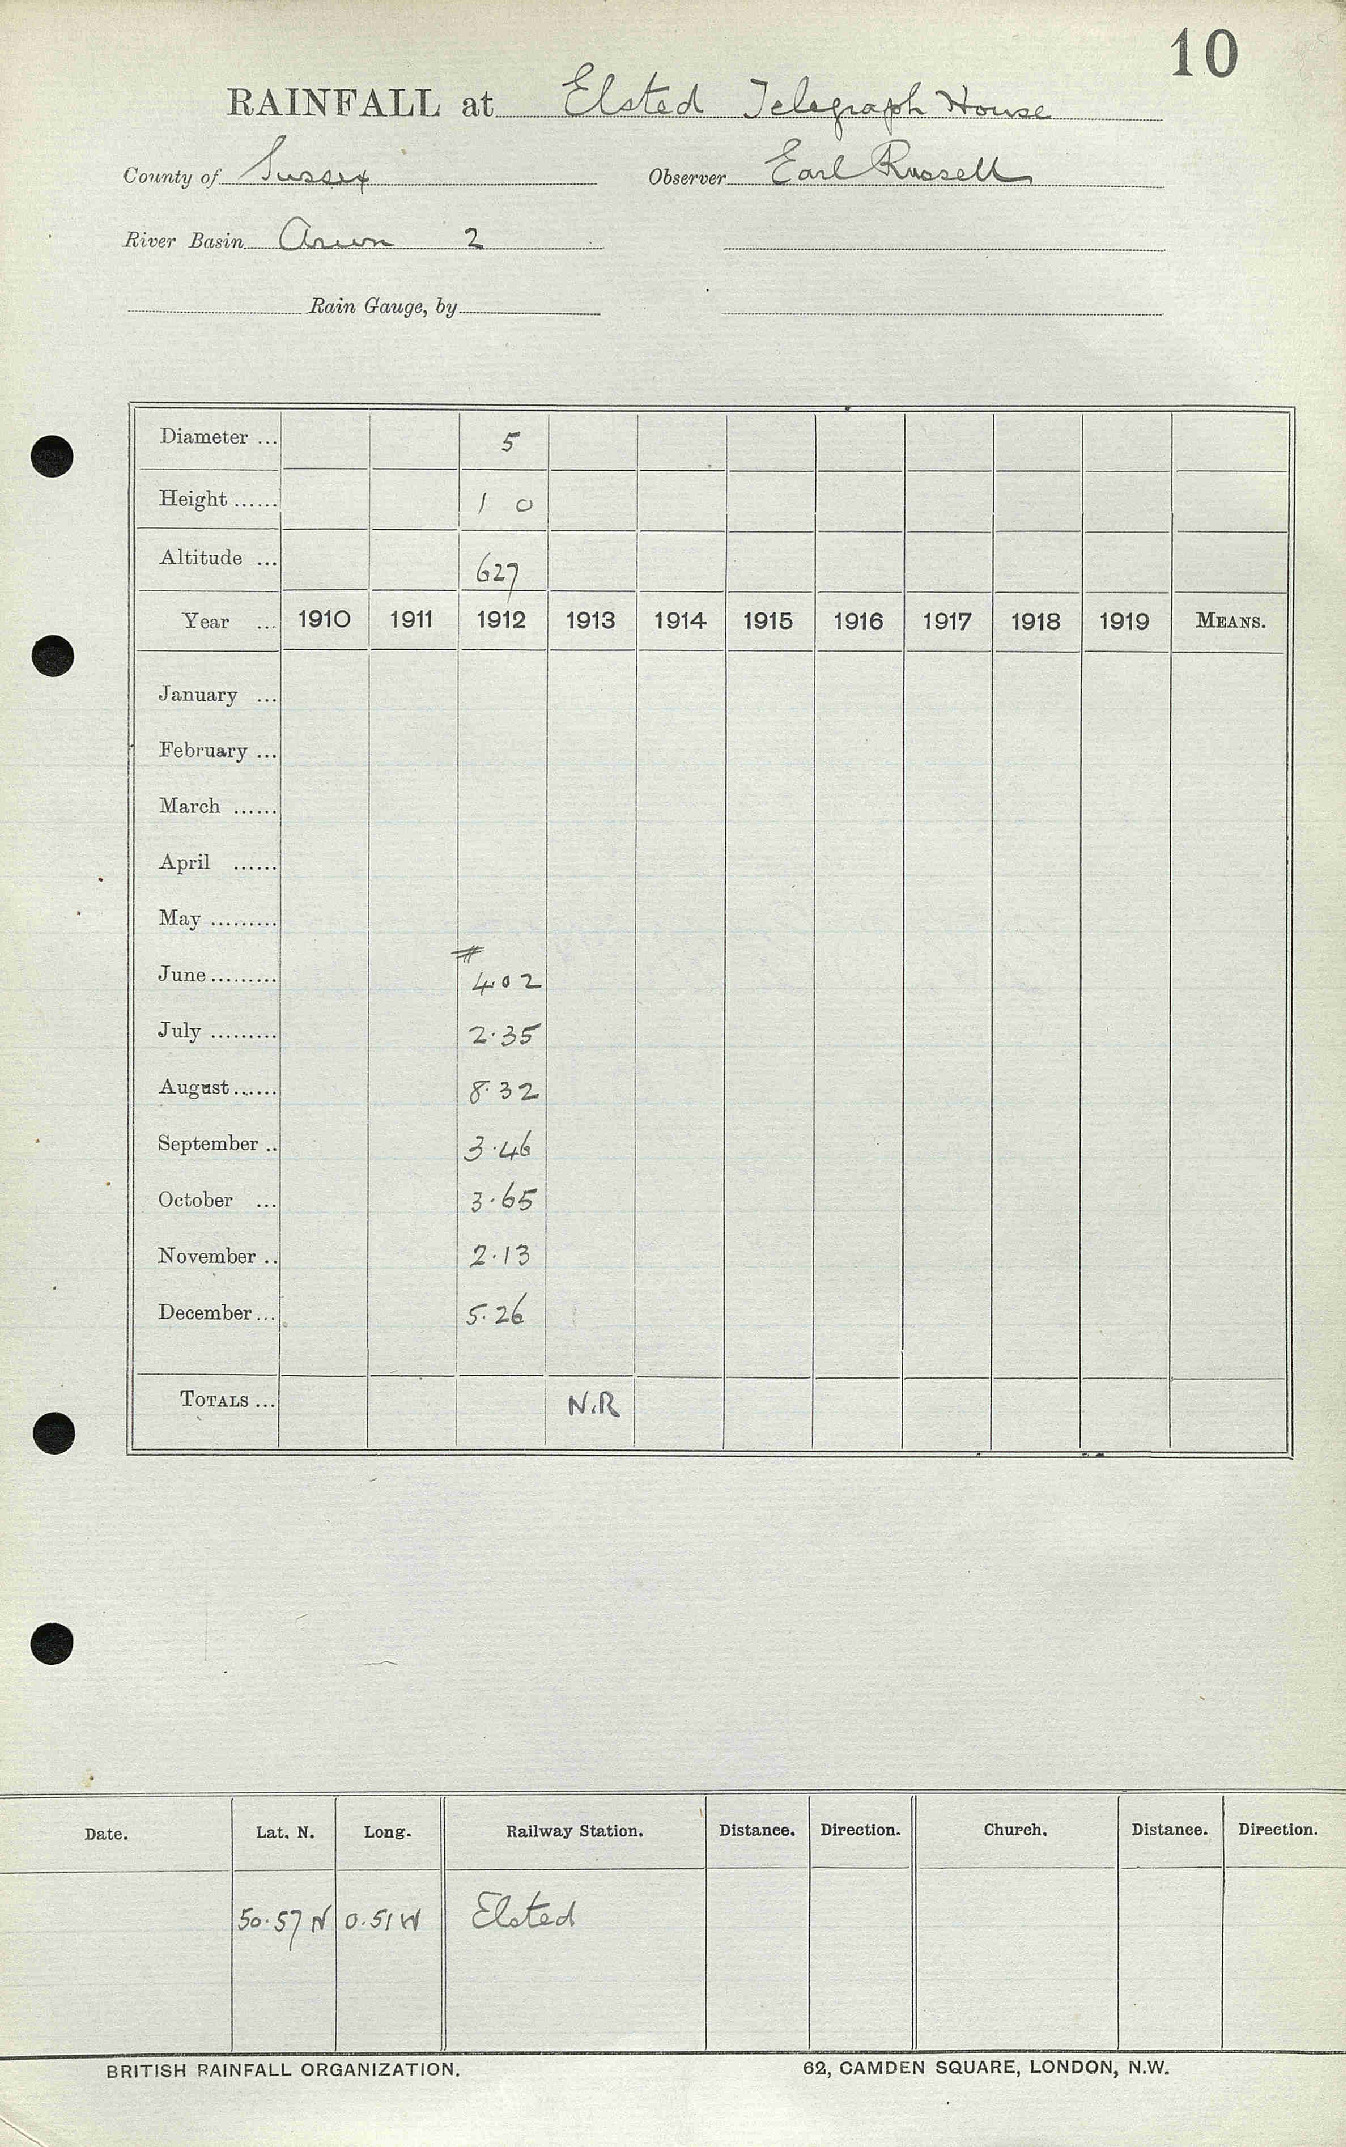 10
RAINFALL at Elsted Telegraph House
County of Sussex Observer Earl Russell
River Basin Arun 2
Rain Gauge, by
Diameter ... 5
Height ...... 1 0
Altitude ... 627
Year ... 1910 1911 1912 1913 1914 1915 1916 1917 1918 1919 MEANS.
January ...
February ...
March ......
April ......
May .........
#
June ......... 4 02
July ......... 2.35
August ...... 8.32
September .. 3.46
October ... 3.65
November .. 2.13
December ... 5.26
TOTALS ... N.R
Date. Lat. N. Long. Railway Station. Distance. Direction. Church. Distance. Direction.
50.57 N 0.51 W Elsted
BRITISH RAINFALL ORGANIZATION. 62, CAMDEN SQUARE, LONDON, N.W.